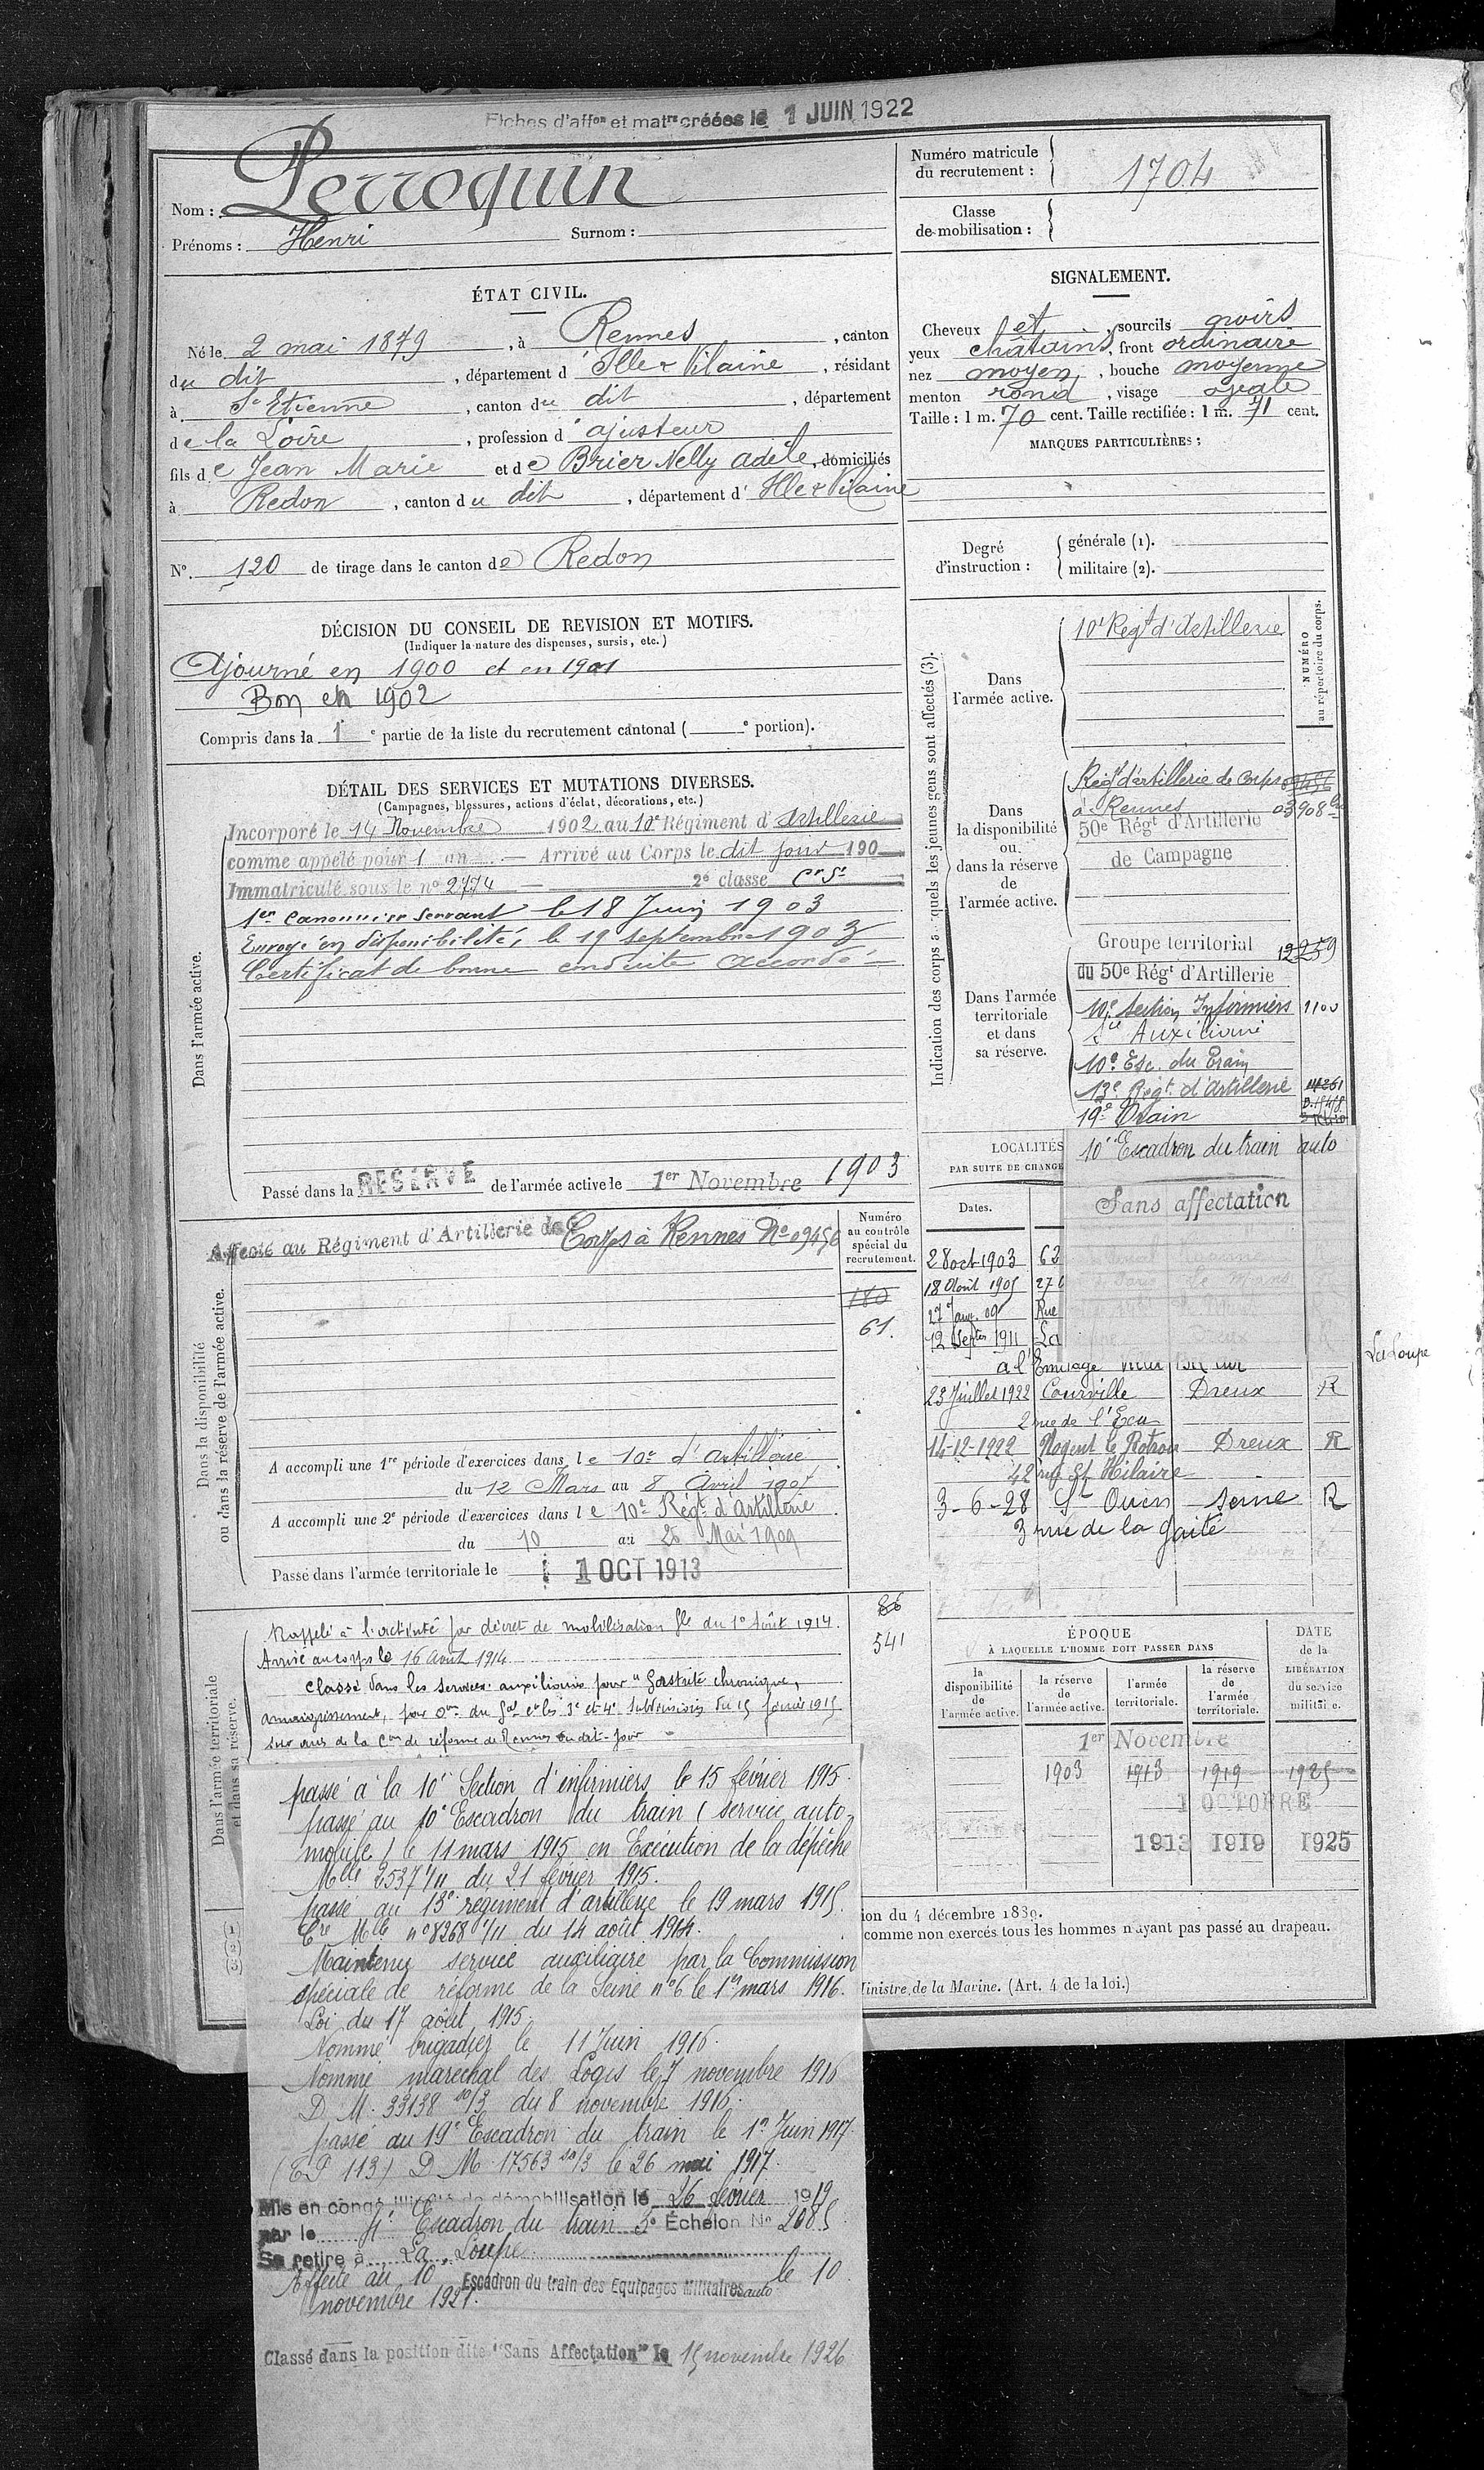 Fiches d'affon et matre créées le 1 JUIN 1922
Nom : Perroquin
Prénoms : Henri Surnom :
Numéro matricule du recrutement : 1704
Classe de mobilisation :
ÉTAT CIVIL.
Né le 2 mai 1879, à Rennes, canton
du dit, département d'Ille & Vilaine, résidant
à St Etienne, canton du dit, département
de la Loire, profession d'ajusteur
fils de Jean Marie et de Brier Nelly adèle, domiciliés
à Redon, canton du dit, département d'Ille & Vilaine
N° 120 de tirage dans le canton de Redon
SIGNALEMENT.
Cheveux et, sourcils noirs
yeux châtains, front ordinaire
nez moyen, bouche moyenne
menton rond, visage ovale
Taille : 1 m. 70 cent. Taille rectifiée : 1 m. 71 cent.
MARQUES PARTICULIÈRES :
Degré d'instruction : générale (1).
militaire (2).
DÉCISION DU CONSEIL DE REVISION ET MOTIFS.
(Indiquer la nature des dispenses, sursis, etc.)
Ajourné en 1900 et en 1901
Bon en 1902
Compris dans la 1e partie de la liste du recrutement cantonal ( e portion).
DÉTAIL DES SERVICES ET MUTATIONS DIVERSES.
(Campagnes, blessures, actions d'éclat, décorations, etc.)
Dans l'armée active.
Incorporé le 14 Novembre 1902 au 10e Régiment d'Artillerie
comme appelé pour 1 an — Arrivé au Corps le dit jour 190
Immatriculé sous le n° 2774 — 2e classe Cr St
1er Canonnier Servant le 18 Juin 1903
Envoyé en disponibilité, le 19 septembre 1903
Certificat de bonne conduite Accordé
Passé dans la RESERVE de l'armée active le 1er Novembre 1903
Indication des corps auxquels les jeunes gens sont affectés (3).
NUMÉRO au répertoire du corps.
Dans l'armée active.
10e Regt d'Artillerie
Dans la disponibilité ou dans la réserve de l'armée active.
Regt d'artillerie de Corps 09456
à Rennes 03908
50e Régt d'Artillerie
de Campagne
Dans l'armée territoriale et dans sa réserve.
Groupe territorial 12259
du 50e Régt d'Artillerie
10e Section Infirmiers 1100
Sce Auxiliaire
10e Esc. du Train
13e Regt d'Artillerie
19e Train
10e Escadron du train auto
Sans affectation
LOCALITÉS
PAR SUITE DE CHANGE
Dates.
28 oct 1903 62
18 Août 1905 27
27 Janv. 09 Rue
12 Septre 1911 La
à l'Ermitage
La Loupe
23 Juillet 1922 Courville Dreux R
2 rue de l'Ecu
14-12-1922 Nogent le Rotrou Dreux R
42 rue St Hilaire
3-6-28 St Ouen Seine R
3 rue de la Gaité
Dans la disponibilité ou dans la réserve de l'armée active.
Affecté au Régiment d'Artillerie de Corps à Rennes No 09456
Numéro au contrôle spécial du recrutement.
180
61.
A accompli une 1re période d'exercices dans le 10e d'Artillerie
du 12 Mars au 8 Avril 1907
A accompli une 2e période d'exercices dans le 10e Régt d'Artillerie
du 10 au 26 Mai 1909
Passé dans l'armée territoriale le 1 OCT 1913
Dans l'armée territoriale et dans sa réserve.
86
541
Rappelé à l'activité par décret de mobilisation Gle du 1er Août 1914.
Arrivé au corps le 16 Aout 1914
Classé dans les services auxiliaires pour "Gastrite chronique,
amaigrissement, par Om du Gal Ct les 3e et 4e Subdivisions du 15 février 1915
sur avis de la Con de réforme de Rennes du dit jour
passé à la 10e Section d'infirmiers le 15 février 1915.
passé au 10e Escadron du train (service auto-
mobile) le 11 mars 1915 en Exécution de la dépêche
Mlle 2537 1/11 du 21 février 1915.
passé au 13e régiment d'artillerie le 19 mars 1915.
Cre Mlle n° 8268 1/11 du 14 août 1914.
Maintenu service auxiliaire par la Commission
spéciale de réforme de la Seine n°6 le 1er mars 1916.
Loi du 17 août 1915.
Nommé brigadier le 11 Juin 1916.
Nommé maréchal des Logis le 7 novembre 1916
D. M. 33138 10/3 du 8 novembre 1916.
passé au 19e Escadron du train le 1er Juin 1917.
(E P 113) D M 17563 10/3 le 26 mai 1917.
Mis en congé illimité de démobilisation le 26 février 1919
par le 4e Escadron du train 5e Échelon No 2085
Se retire à La Loupe
Affecté au 10 Escadron du train des Equipages Militaires auto le 10
novembre 1921.
Classé dans la position dite "Sans Affectation" le 15 novembre 1926
ÉPOQUE
À LAQUELLE L'HOMME DOIT PASSER DANS
la disponibilité de l'armée active.
la réserve de l'armée active.
l'armée territoriale.
la réserve de l'armée territoriale.
DATE de la LIBÉRATION DU service militaire.
1er Novembre
1903 1913 1919 1925
1 OCTOBRE
1913 1919 1925
ion du 4 décembre 1889.
comme non exercés tous les hommes n'ayant pas passé au drapeau.
Ministre de la Marine. (Art. 4 de la loi.)
(1)
(2)
(3)